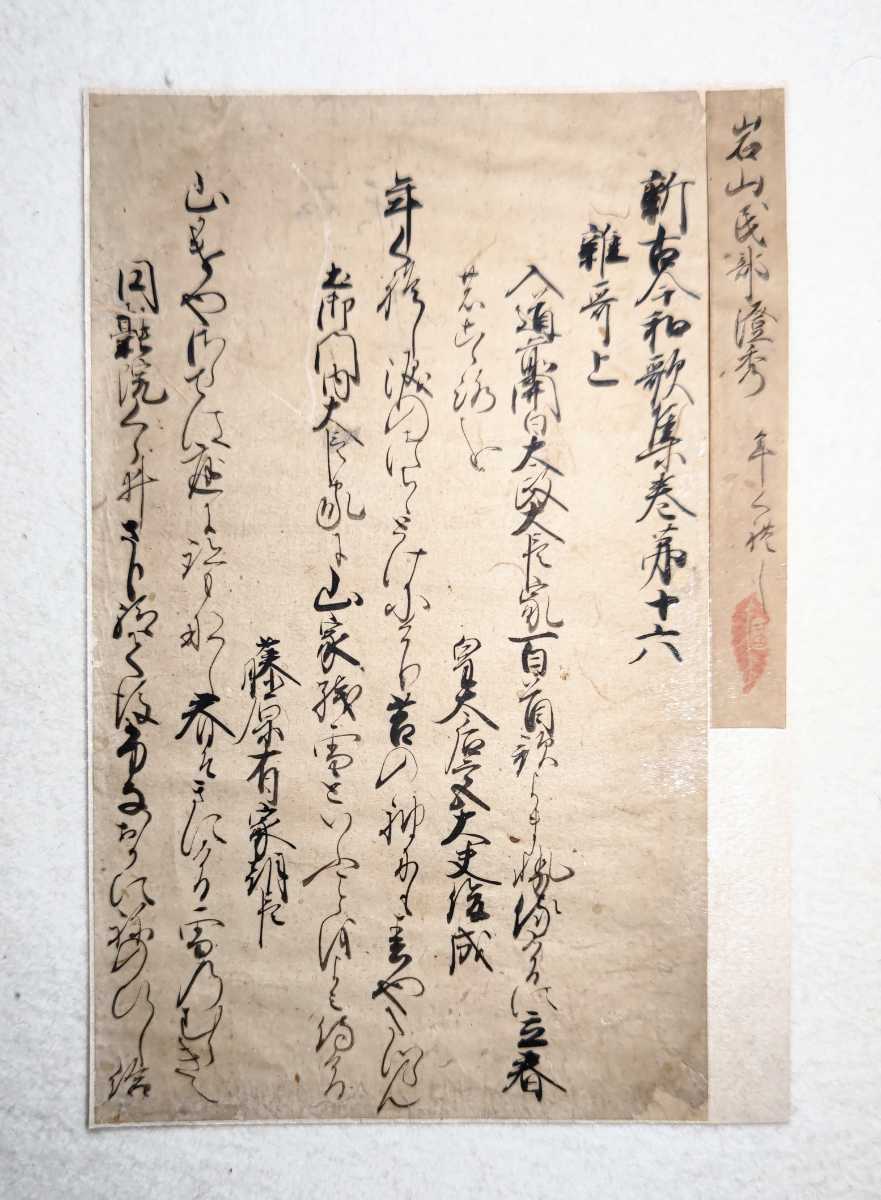 岩山民部澄秀 年くれし
新古今和歌集巻第十六
雑哥上
入道前関白太政大臣家百首哥よませ侍けるに立春
のこゝろを
皇太后宮大夫俊成
年くれし涙のつらゝとけにけり苔の袖にも春やたつらん
土御門内大臣家に山家残雪といふ心をよみ侍ける
藤原有家朝臣
山かけやさらては庭に跡もなし春そきにける雪のむらきえ
円融院くらゐさり給て後船岳に子日し給